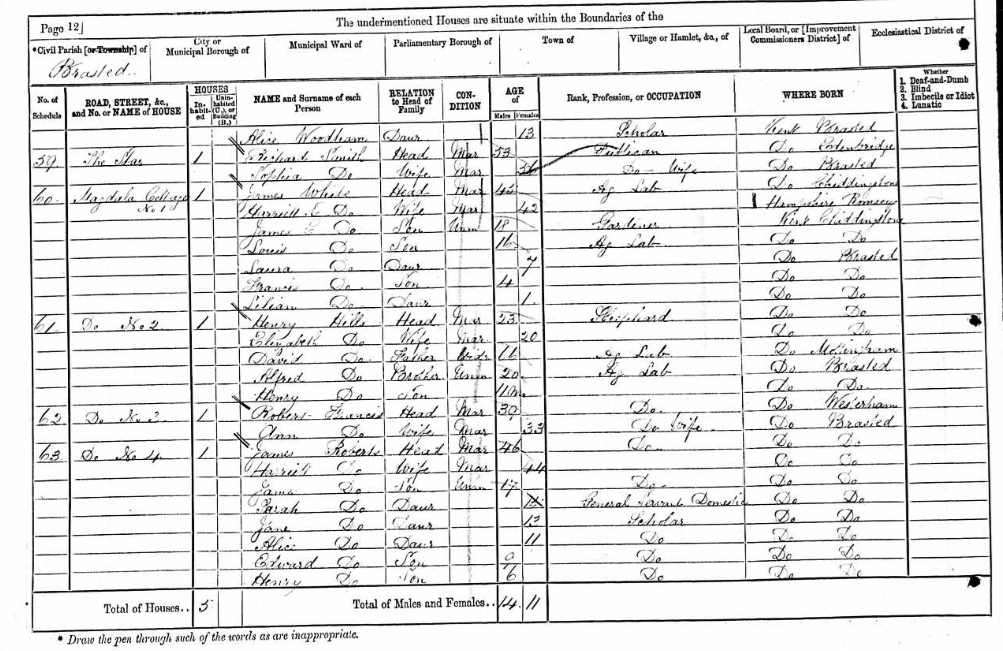 Page 12]
The undermentioned Houses are situate within the Boundaries of the
*Civil Parish [or Township] of
City or Municipal Borough of
Municipal Ward of
Parliamentary Borough of
Town of
Village or Hamlet, &c., of
Local Board, or [Improvement Commissioners District] of
Ecclesiastical District of
Brasted
No. of Schedule
ROAD, STREET, &c., and No. or NAME of HOUSE
HOUSES
In-habit-ed
Unin-habited (U.), or Building (B.)
NAME and Surname of each Person
RELATION to Head of Family
CON-DITION
AGE of
Males Females
Rank, Profession, or OCCUPATION
WHERE BORN
Whether
1. Deaf-and-Dumb
2. Blind
3. Imbecile or Idiot
4. Lunatic
Alice Woodham Daur 13 Scholar Kent Brasted
59 The Star 1 Richard Smith Head Mar 53 Publican Do Edenbridge
Sophia Do Wife Mar Do Wife Do Brasted
60 Magdala Cottage No 1 1 James White Head Mar 45 Ag Lab Do Chiddingstone
Harriett E Do Wife Mar 42 Hampshire Romsey
James Do Son Unm 18 Gardener Kent Chiddingstone
Louis Do Son 16 Ag Lab Do Do
Laura Do Daur 7 Do Brasted
Francis Do Son 4 Do Do
Lilian Do Daur 1 Do Do
61 Do No 2 1 Henry Hills Head Mar 23 Shephard Do Do
Elizabeth Do Wife Mar 20 Do Do
David Do Father Widr Ag Lab Do
Alfred Do Brother Unm 20 Ag Lab Do Brasted
Henry Do Son 11m Do Do
62 Do No 3 1 Robert Francis Head Mar 39 Do Do Westerham
Ann Do Wife Mar 33 Do Wife Do Brasted
63 Do No 4 1 James Roberts Head Mar 46 Do Do Do
Harriett Do Wife Mar 44 Do Do
James Do Son Unm 17 Do Do Do
Sarah Do Daur General Servant Domestic Do Do
Jane Do Daur 13 Scholar Do Do
Alice Do Daur 11 Do Do Do
Edward Do Son 9 Do Do Do
Henry Do Son 6 Do Do Do
Total of Houses.. 5 Total of Males and Females.. 14 11
* Draw the pen through such of the words as are inappropriate.